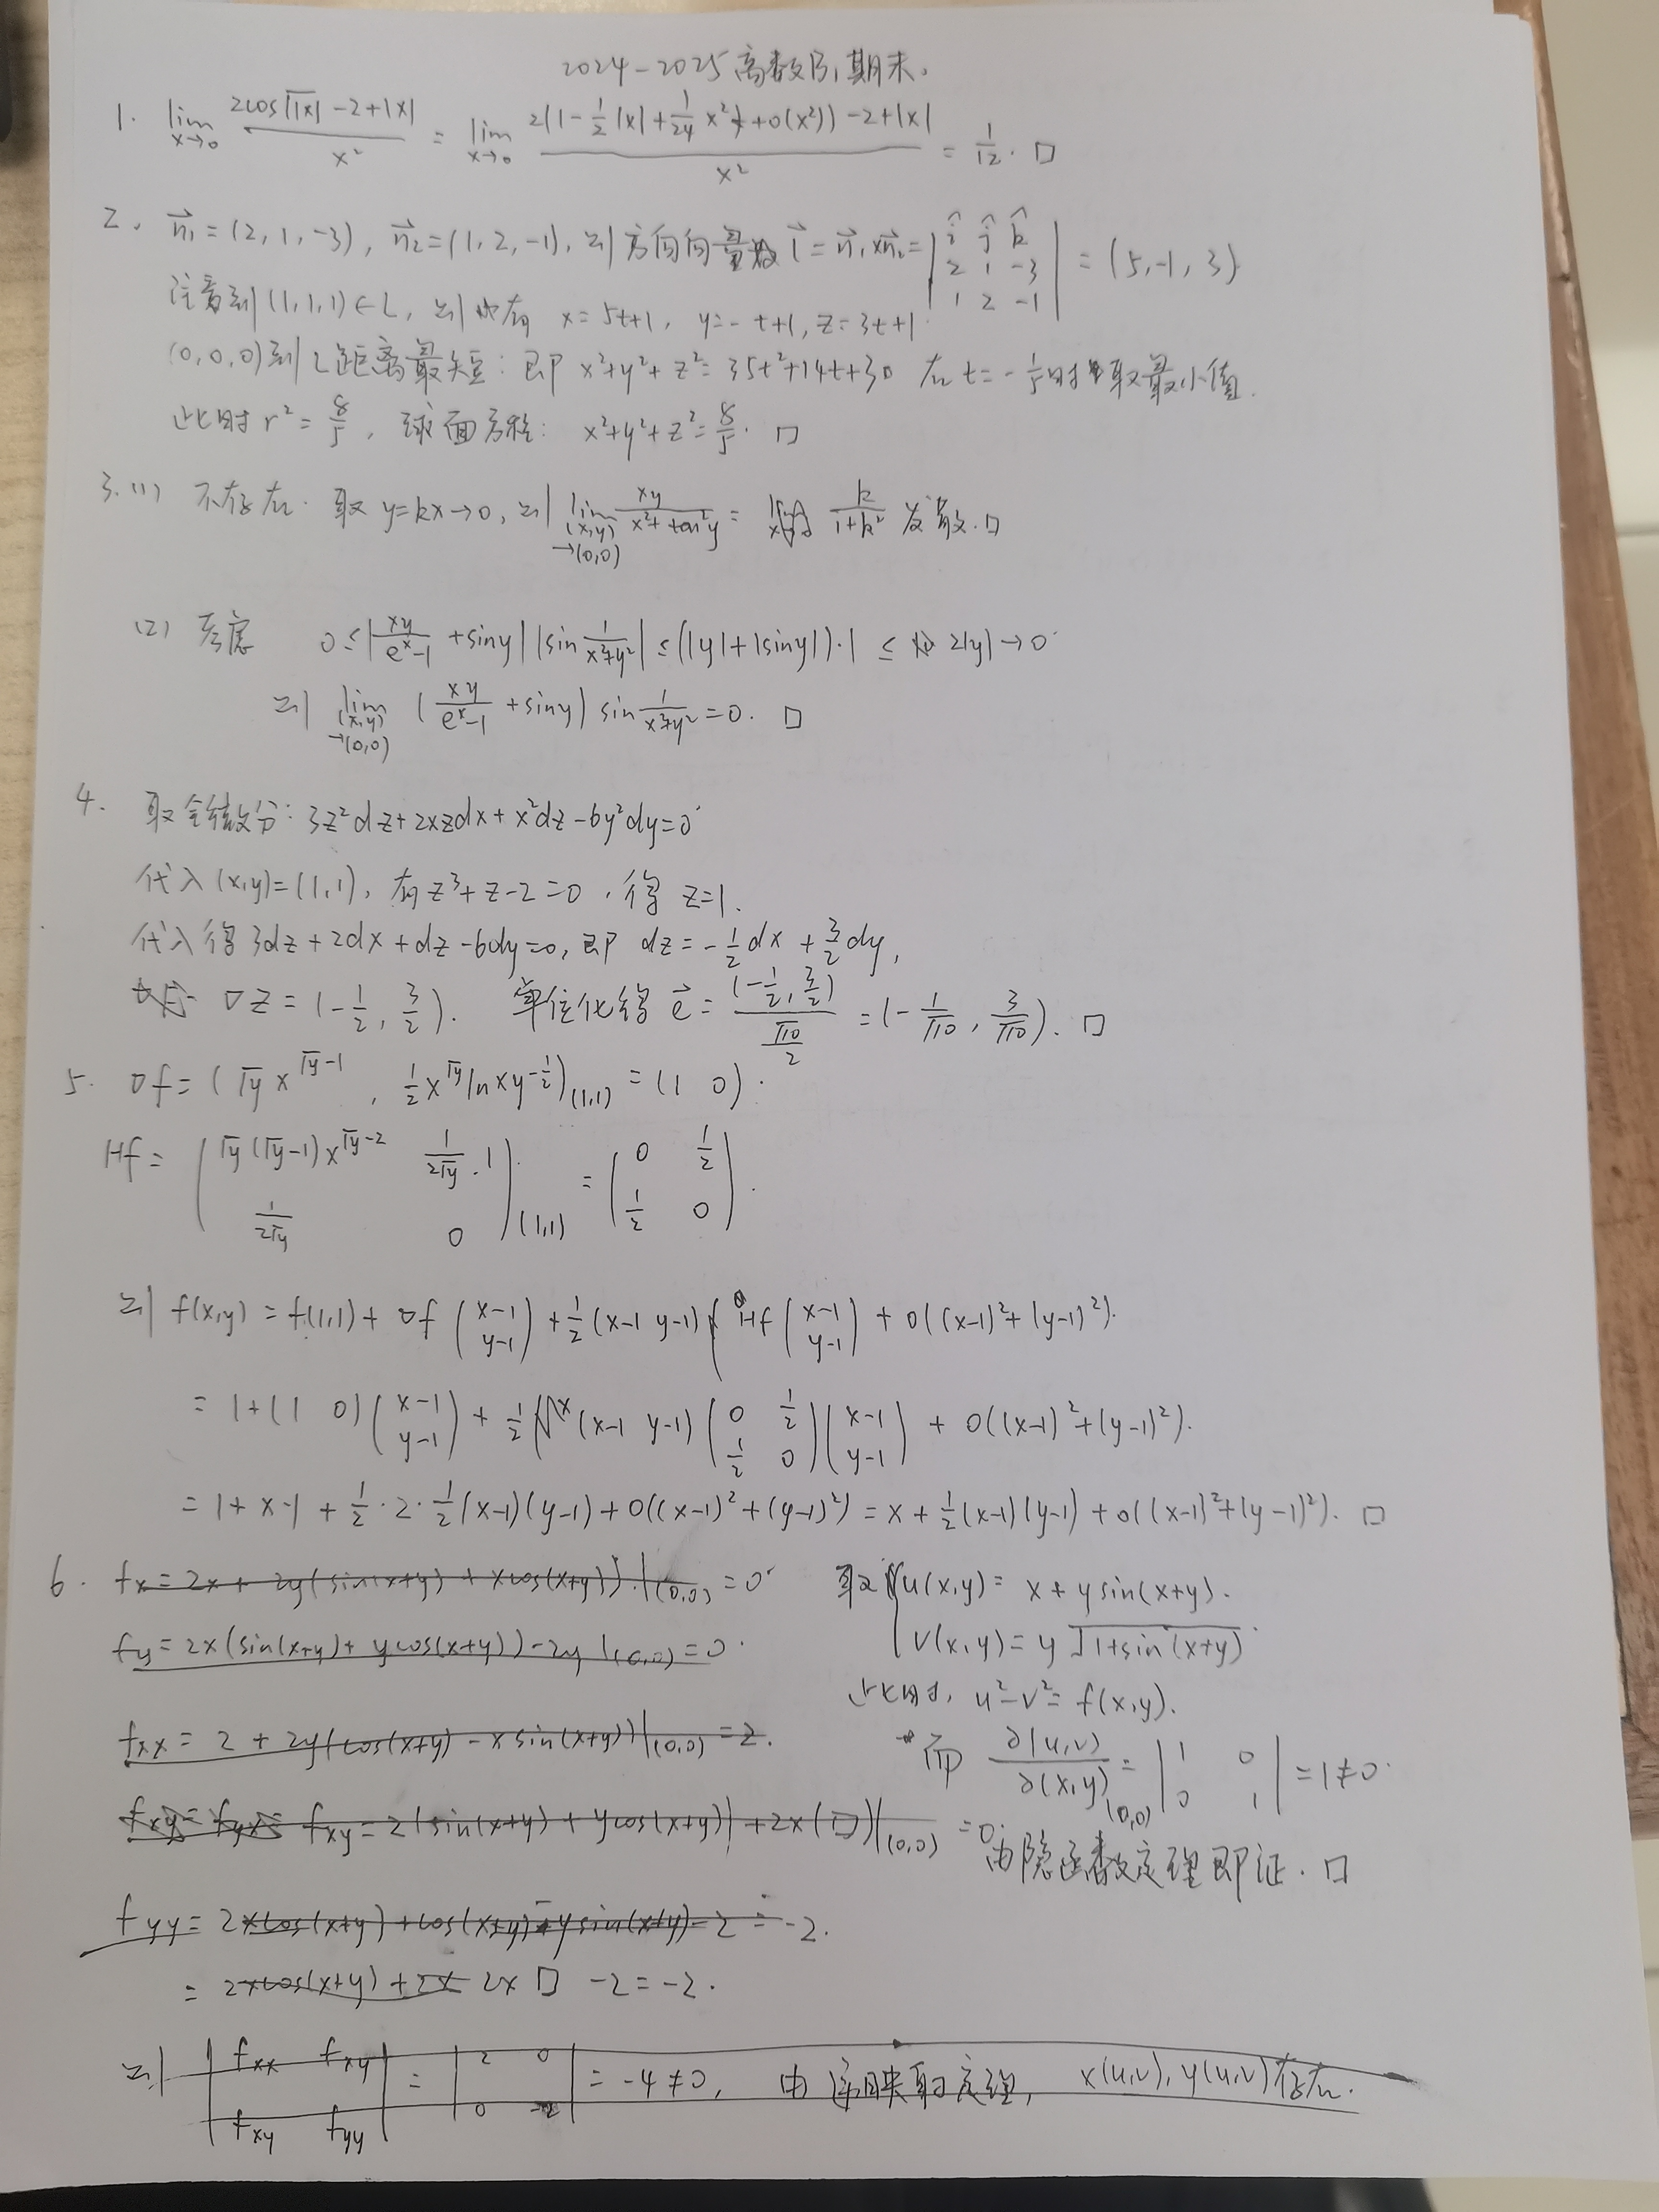 2024-2025高数B1期末.
1. lim_{x→0} (2cos√|x| -2+|x|)/x² = lim_{x→0} (2(1-1/2|x|+1/24 x²+o(x²))-2+|x|)/x² = 1/12. □
2. n₁=(2,1,-3), n₂=(1,2,-1), 则方向向量 l=n₁×n₂= |i j k; 2 1 -3; 1 2 -1| = (5,-1,3)
注意到(1,1,1)∈L, 则 有 x=5t+1, y=-t+1, z=3t+1.
(0,0,0)到L距离最短: 即 x²+y²+z²=35t²+14t+3 在t=-1/5时取最小值.
此时 r²=8/5, 球面方程: x²+y²+z²=8/5. □
3.(1) 不存在. 取 y=kx→0, 则 lim_{(x,y)→(0,0)} xy/(x²+tan²y) = k/(1+k²) 发散.□
(2) 考虑 0≤|xy/(eˣ-1)+siny||sin 1/(x²+y²)|≤(|y|+|siny|)·1 ≤ 2|y|→0
则 lim_{(x,y)→(0,0)} (xy/(eˣ-1)+siny) sin 1/(x²+y²)=0. □
4. 取全微分: 3z²dz+2xzdx+x²dz-6y²dy=0
代入(x,y)=(1,1), 有z³+z-2=0, 得 z=1.
代入得 3dz+2dx+dz-6dy=0, 即 dz=-1/2dx+3/2dy,
∇z=(-1/2, 3/2). 单位化得 e=(-1/2, 3/2)/(√10/2)=(-1/√10, 3/√10). □
5. ∇f=(√y x^{√y-1}, 1/2 x^{√y} lnx y^{-1/2})_{(1,1)}=(1 0).
Hf= (√y(√y-1)x^{√y-2} 1/(2√y)·1; 1/(2√y) 0)_{(1,1)} = (0 1/2; 1/2 0).
则 f(x,y)=f(1,1)+∇f (x-1; y-1)+1/2(x-1 y-1) Hf (x-1; y-1)+o((x-1)²+(y-1)²).
=1+(1 0)(x-1; y-1)+1/2(x-1 y-1)(0 1/2; 1/2 0)(x-1; y-1)+o((x-1)²+(y-1)²).
=1+x-1+1/2·2·1/2(x-1)(y-1)+o((x-1)²+(y-1)²)=x+1/2(x-1)(y-1)+o((x-1)²+(y-1)²). □
6. fx=2x+2y(sin(x+y)+xcos(x+y))|_{(0,0)}=0
fy=2x(sin(x+y)+ycos(x+y))-2y|_{(0,0)}=0
fxx=2+2y(cos(x+y)-xsin(x+y))|_{(0,0)}=2.
fxy=fyx= fxy=2(sin(x+y)+ycos(x+y))+2x(□)|_{(0,0)}=0.
fyy=2xcos(x+y)+cos(x+y)-ysin(x+y)-2=-2.
=2xcos(x+y)+2x 2x□ -2=-2.
则 |fxx fxy; fxy fyy| = |2 0; 0 -2| =-4≠0, 由逆映射定理, x(u,v), y(u,v)存在.
取{u(x,y)=x+ysin(x+y).
v(x,y)=y√(1+sin²(x+y))
此时, u²-v²=f(x,y).
而 ∂(u,v)/∂(x,y)_{(0,0)} = |1 0; 0 1| =1≠0.
由隐函数定理即证. □